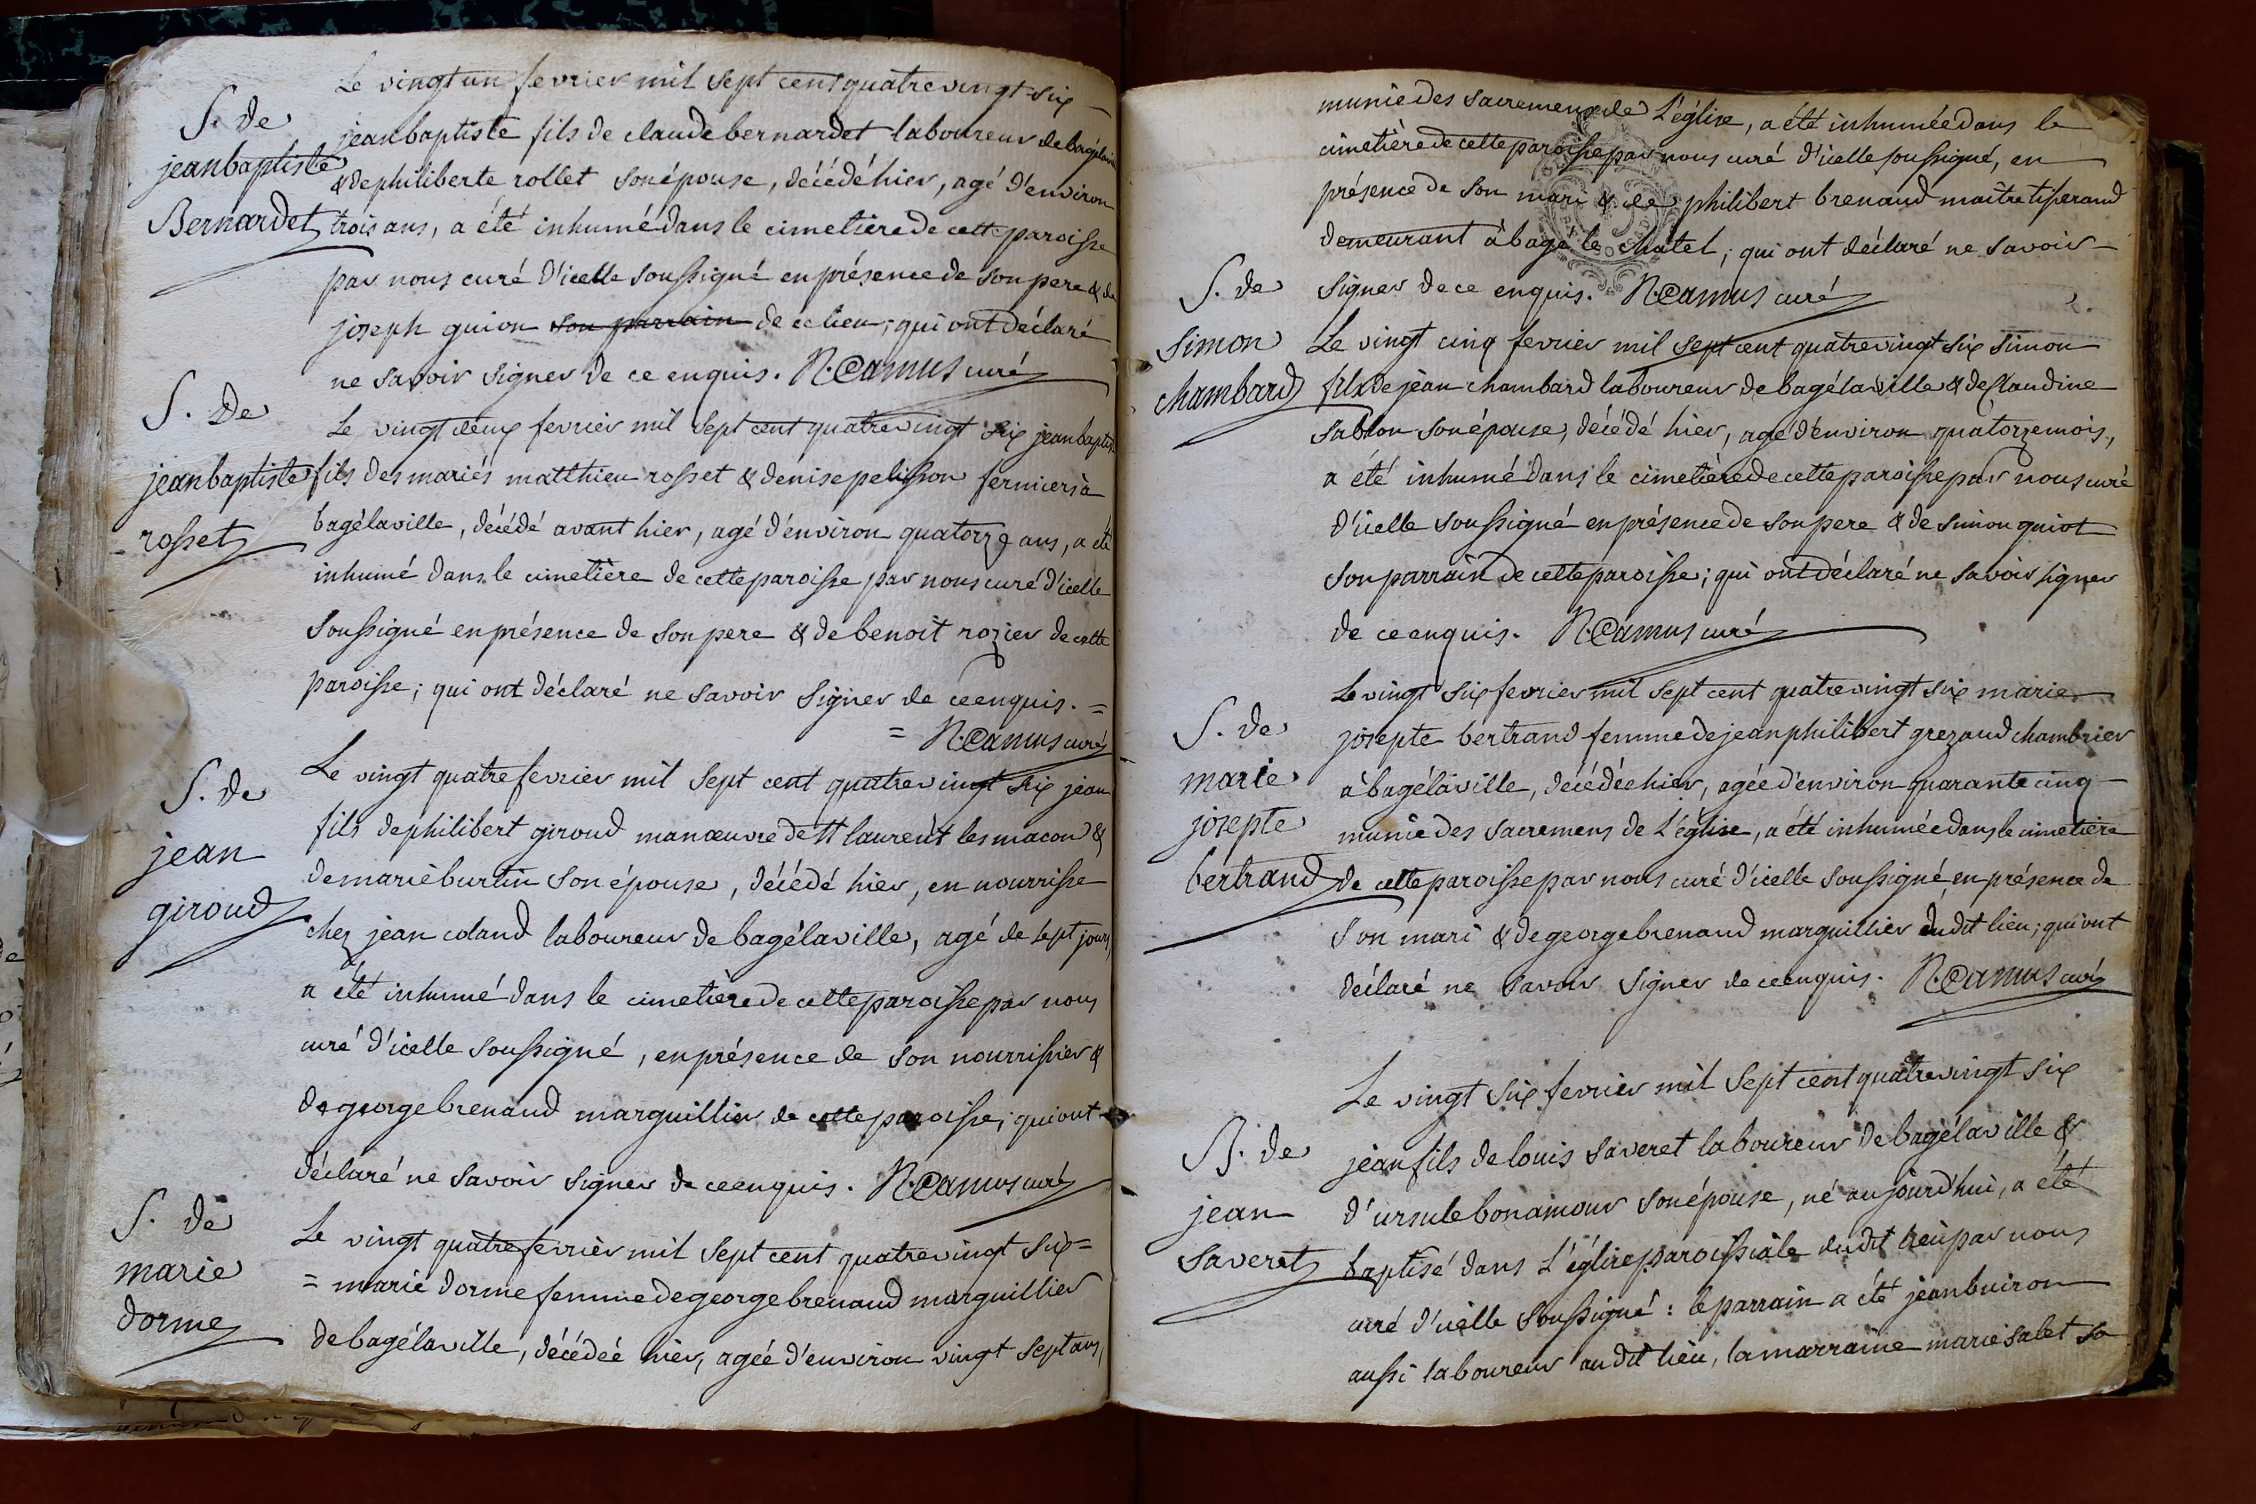 Le vingt un fevrier mil sept cent quatre vingt six
S. de
jean baptiste
Bernardet
jean baptiste fils de claude bernardet laboureur de bagélaville
& de philiberte rollet son épouse, décédé hier, agé d'environ
trois ans, a été inhumé dans le cimetière de cette paroisse
par nous curé d'icelle soussigné en présence de son pere & de
joseph guion son parrain de ce lieu; qui ont déclaré
ne savoir signer de ce enquis. N. Camus curé
S. de
jean baptiste
rosset
Le vingt deux fevrier mil sept cent quatre vingt six jean baptiste
fils des mariés matthieu rosset & denise pelisson fermiers à
bagélaville, décédé avant hier, agé d'environ quatorze ans, a été
inhumé dans le cimetière de cette paroisse par nous curé d'icelle
soussigné en présence de son pere & de benoit rozier de cette
paroisse; qui ont déclaré ne savoir signer de ce enquis. =
= N. Camus curé
S. de
jean
giroud
Le vingt quatre fevrier mil sept cent quatre vingt six jean
fils de philibert giroud manœuvre de St laurent les macon &
de marie burtin son épouse, décédé hier, en nourrisse
chez jean coland laboureur de bagélaville, agé de sept jours,
a été inhumé dans le cimetière de cette paroisse par nous
curé d'icelle soussigné, en présence de son nourrissier &
de george brenaud marguillier de cette paroisse; qui ont
déclaré ne savoir signer de ce enquis. N. Camus curé
S. de
marie
dorme
Le vingt quatre fevrier mil sept cent quatre vingt six =
= marie dorme femme de george brenaud marguillier
de bagélaville, décédée hier, agée d'environ vingt sept ans,
munie des sacremens de l'église, a été inhumée dans le
cimetière de cette paroisse par nous curé d'icelle soussigné, en
présence de son mari & de philibert brenaud maitre tisserand
demeurant à bagé le chatel; qui ont déclaré ne savoir
signer de ce enquis. N. Camus curé
S. de
simon
chambard
Le vingt cinq fevrier mil sept cent quatre vingt six simon
fils de jean chambard laboureur de bagélaville & de claudine
sablon son épouse, décédé hier, agé d'environ quatorze mois,
a été inhumé dans le cimetière de cette paroisse par nous curé
d'icelle soussigné en présence de son pere & de simon guiot
son parrain de cette paroisse; qui ont déclaré ne savoir signer
de ce enquis. N. Camus curé
S. de
marie
josepte
bertrand
Le vingt six fevrier mil sept cent quatre vingt six marie
josepte bertrand femme de jean philibert grezaud chambrier
à bagélaville, décédée hier, agée d'environ quarante cinq
munie des sacremens de l'église, a été inhumée dans le cimetière
de cette paroisse par nous curé d'icelle soussigné en présence de
son mari & de george brenaud marguillier dudit lieu; qui ont
déclaré ne savoir signer de ce enquis. N. Camus curé
B. de
jean
saveret
Le vingt six fevrier mil sept cent quatre vingt six
jean fils de louis saveret laboureur de bagélaville &
d'ursule bonamour son épouse, né aujourd'hui, a été
baptisé dans l'église paroissiale dudit lieu par nous
curé d'icelle soussigné: le parrain a été jean buiron
aussi laboureur audit lieu, la marraine marie salet sa